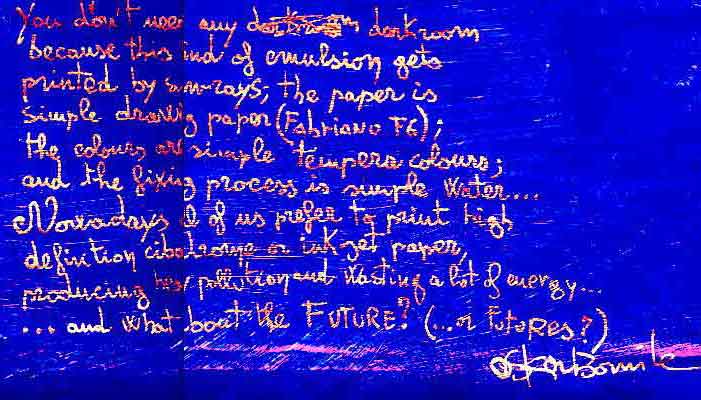 You don't need any darkroom darkroom
because this ind of emulsion gets
printed by sun-rays; the paper is
simple drawing paper (Fabriano F6);
the colours are simple tempera colours;
and the fixing process is simple water...
Nowadays of us prefer to print high
definition cibachrome or ink-jet paper,
producing pollution and wasting a lot of energy...
... and what bout the FUTURE? (...or FUTURES?)